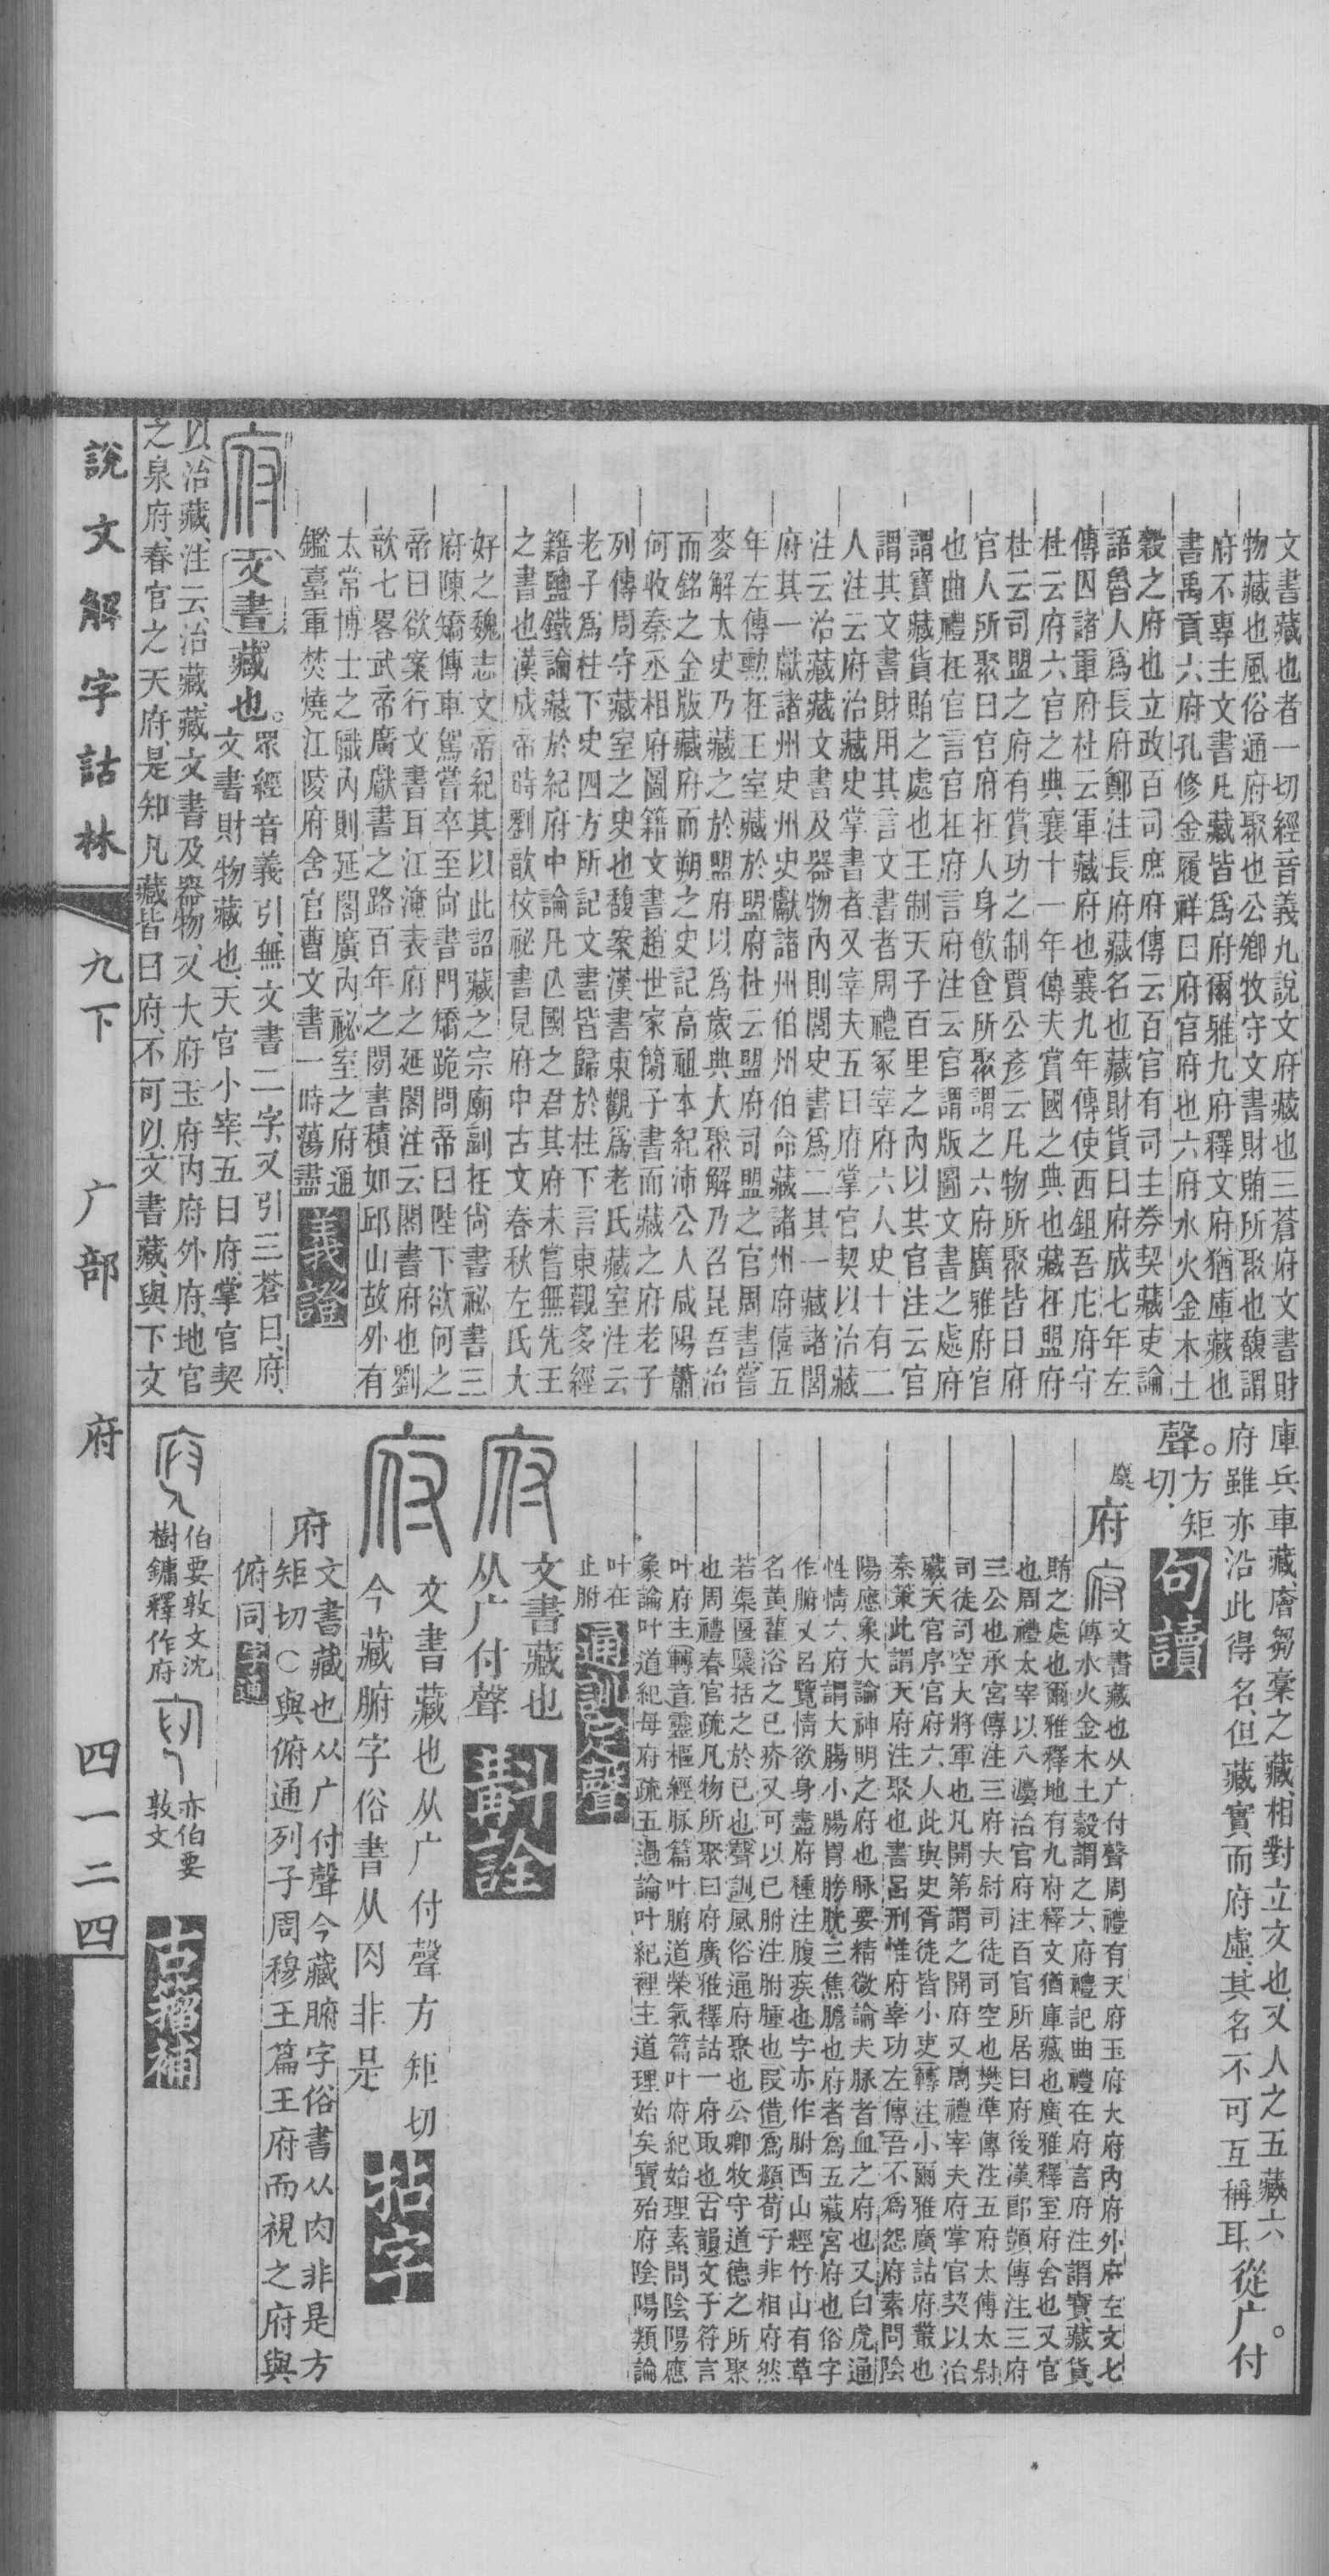 文書藏也者一切經音義九說文府藏也三蒼府文書財
物藏也風俗通府聚也公鄉牧守文書財賄所聚也馥謂
府不專主文書凡藏皆爲府爾雅九府釋文府猶庫藏也
書禹貢六府孔修金履祥曰府官府也六府水火金木土
穀之府也立政百司庶府傳云百官有司主券契藏吏論
語魯人爲長府鄭注長府藏名也藏財貨曰府成七年左
傳囚諸軍府杜云軍藏府也襄九年傳使西鉏吾庀府守
杜云府六官之典襄十一年傳夫賞國之典也藏在盟府
杜云司盟之府有賞功之制賈公彥云凡物所聚皆曰府
官人所聚曰官府在人身飲食所聚謂之六府廣雅府官
也曲禮在官言官在府言府注云官謂版圖文書之處府
謂寶藏貨賄之處也王制天子百里之內以其官注云官
謂其文書財用其言文書者周禮冢宰府六人史十有二
人注云府治藏史掌書者又宰夫五曰府掌官契以治藏
注云治藏藏文書及器物內則閭史書爲二其一藏諸閭
府其一獻諸州史州史獻諸州伯州伯命藏諸州府僖五
年左傳勳在王室藏於盟府杜云盟府司盟之官周書嘗
麥解太史乃藏之於盟府以爲歲典大聚解乃召昆吾治
而銘之金版藏府而朔之史記高祖本紀沛公人咸陽蕭
何收秦丞相府圖籍文書趙世家簡子書而藏之府老子
列傳周守藏室之史也馥案漢書東觀爲老氏藏室注云
老子爲柱下史四方所記文書皆歸於柱下言東觀多經
籍鹽鐵論藏於紀府中論凡亾國之君其府未嘗無先王
之書也漢成帝時劉歆校祕書見府中古文春秋左氏大
好之魏志文帝紀其以此詔藏之宗廟副在尙書祕書三
府陳矯傳車駕嘗卒至尙書門矯跪問帝曰陛下欲何之
帝曰欲案行文書耳江淹表府之延閣注云閣書府也劉
歆七畧武帝廣獻書之路百年之閒書積如邱山故外有
太常博士之職內則延閣廣內祕室之府通
鑑臺軍焚燒江陵府舍官曹文書一時蕩盡 義證
府 文書藏也。眾經音義引、無文書二字、又引三蒼曰、府、
文書財物藏也、天官小宰、五曰府、掌官契
以治藏、注云、治藏、藏文書及器物、又大府玉府內府外府、地官
之泉府、春官之天府、是知凡藏皆曰府、不可以文書藏、與下文
庫兵車藏、廥芻稾之藏、相對立文也、又人之五藏六
府雖亦沿此得名、但藏實而府虛、其名不可互稱耳、從广。付
聲。方矩切、 句讀
府 文書藏也从广付聲周禮有天府玉府大府內府外府左文七
傳水火金木土穀謂之六府禮記曲禮在府言府注謂寶藏貨
賄之處也爾雅釋地有九府釋文猶庫藏也廣雅釋室府舍也又官
也周禮太宰以八灋治官府注百官所居曰府後漢郎顗傳注三府
三公也承宮傳注三府大尉司徒司空也樊準傳注五府太傅太尉
司徒司空大將軍也凡開第謂之開府又周禮宰夫府掌官契以治
藏天官序官府六人此與史胥徒皆小吏轉注小爾雅廣詁府叢也
秦策此謂天府注聚也書呂刑惟府辜功左傳吾不爲怨府素問陰
陽應象大論神明之府也脉要精微論夫脉者血之府也又白虎通
性情六府謂大腸小腸胃膀胱三焦膽也府者爲五藏宮府也俗字
作腑又呂覽情欲身盡府種注腹疾也字亦作胕西山經竹山有草
名黃雚浴之已疥又可以已胕注胕腫也叚借爲頫荀子非相府然
若渠匽檃括之於已也聲訓風俗通府聚也公卿牧守道德之所聚
也周禮春官疏凡物所聚曰府廣雅釋詁一府取也古韻文子符言
叶府主轉音靈樞經脉篇叶腑道榮氣篇叶府紀始理素問陰陽應
象論叶道紀母府疏五過論叶紀裡主道理始矣寶殆府陰陽類論
叶在止胕 通訓定聲
文書藏也
从广付聲 斠詮
文書藏也从广付聲方矩切
今藏腑字俗書从肉非是 拈字
府 文書藏也从广付聲今藏腑字俗書从肉非是方
矩切〇與俯通列子周穆王篇王府而視之府與
俯同
伯要敦文沈樹鏞釋作府
亦伯要敦文 古籀補
說文解字詁林 九下 广部 府 四一二四